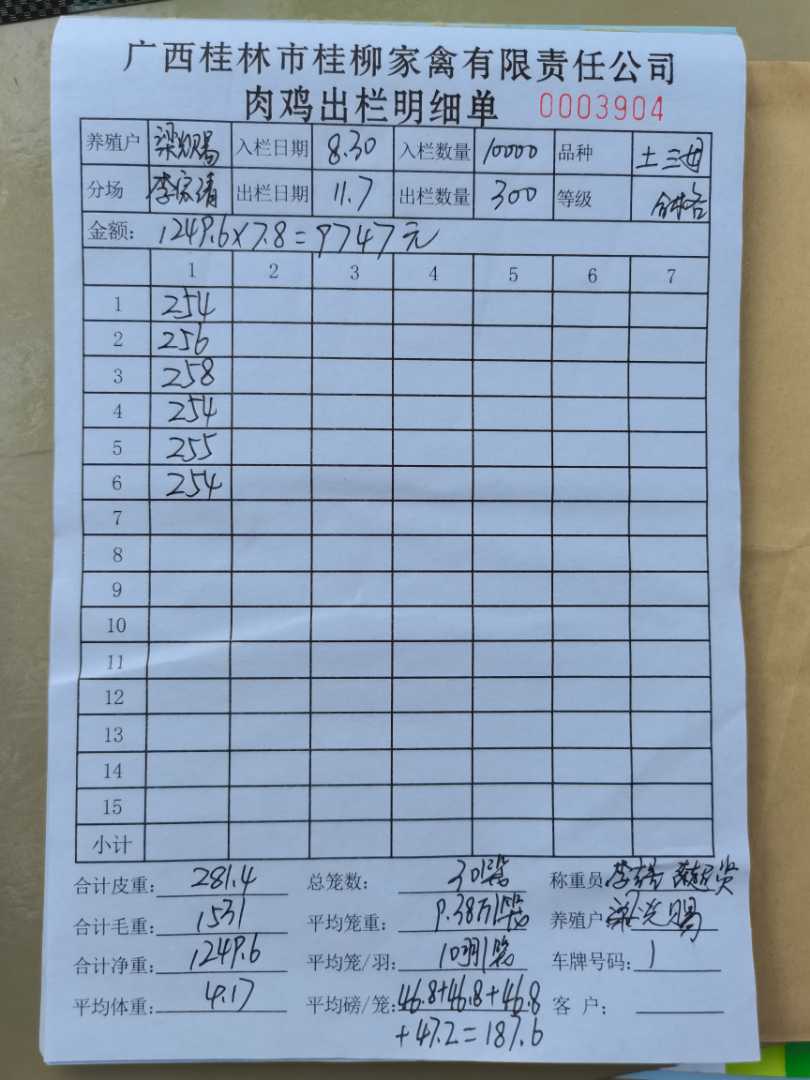 广西桂林市桂柳家禽有限责任公司
肉鸡出栏明细单 0003904
养殖户 入栏日期 8.30 入栏数量 10000 品种 土三母
分场 出栏日期 11.7 出栏数量 300 等级 合格
金额: 1249.6×7.8=9747元
1 2 3 4 5 6 7
1 254
2 256
3 258
4 254
5 255
6 254
7
8
9
10
11
12
13
14
15
小计
合计皮重: 281.4 总笼数: 30 称重员
合计毛重: 1531 平均笼重: 9.38 养殖户
合计净重: 1249.6 平均笼/羽: 10 车牌号码: 1
平均体重: 4.17 平均磅/笼: 46.8+46.8+46.8 客户:
+47.2=187.6